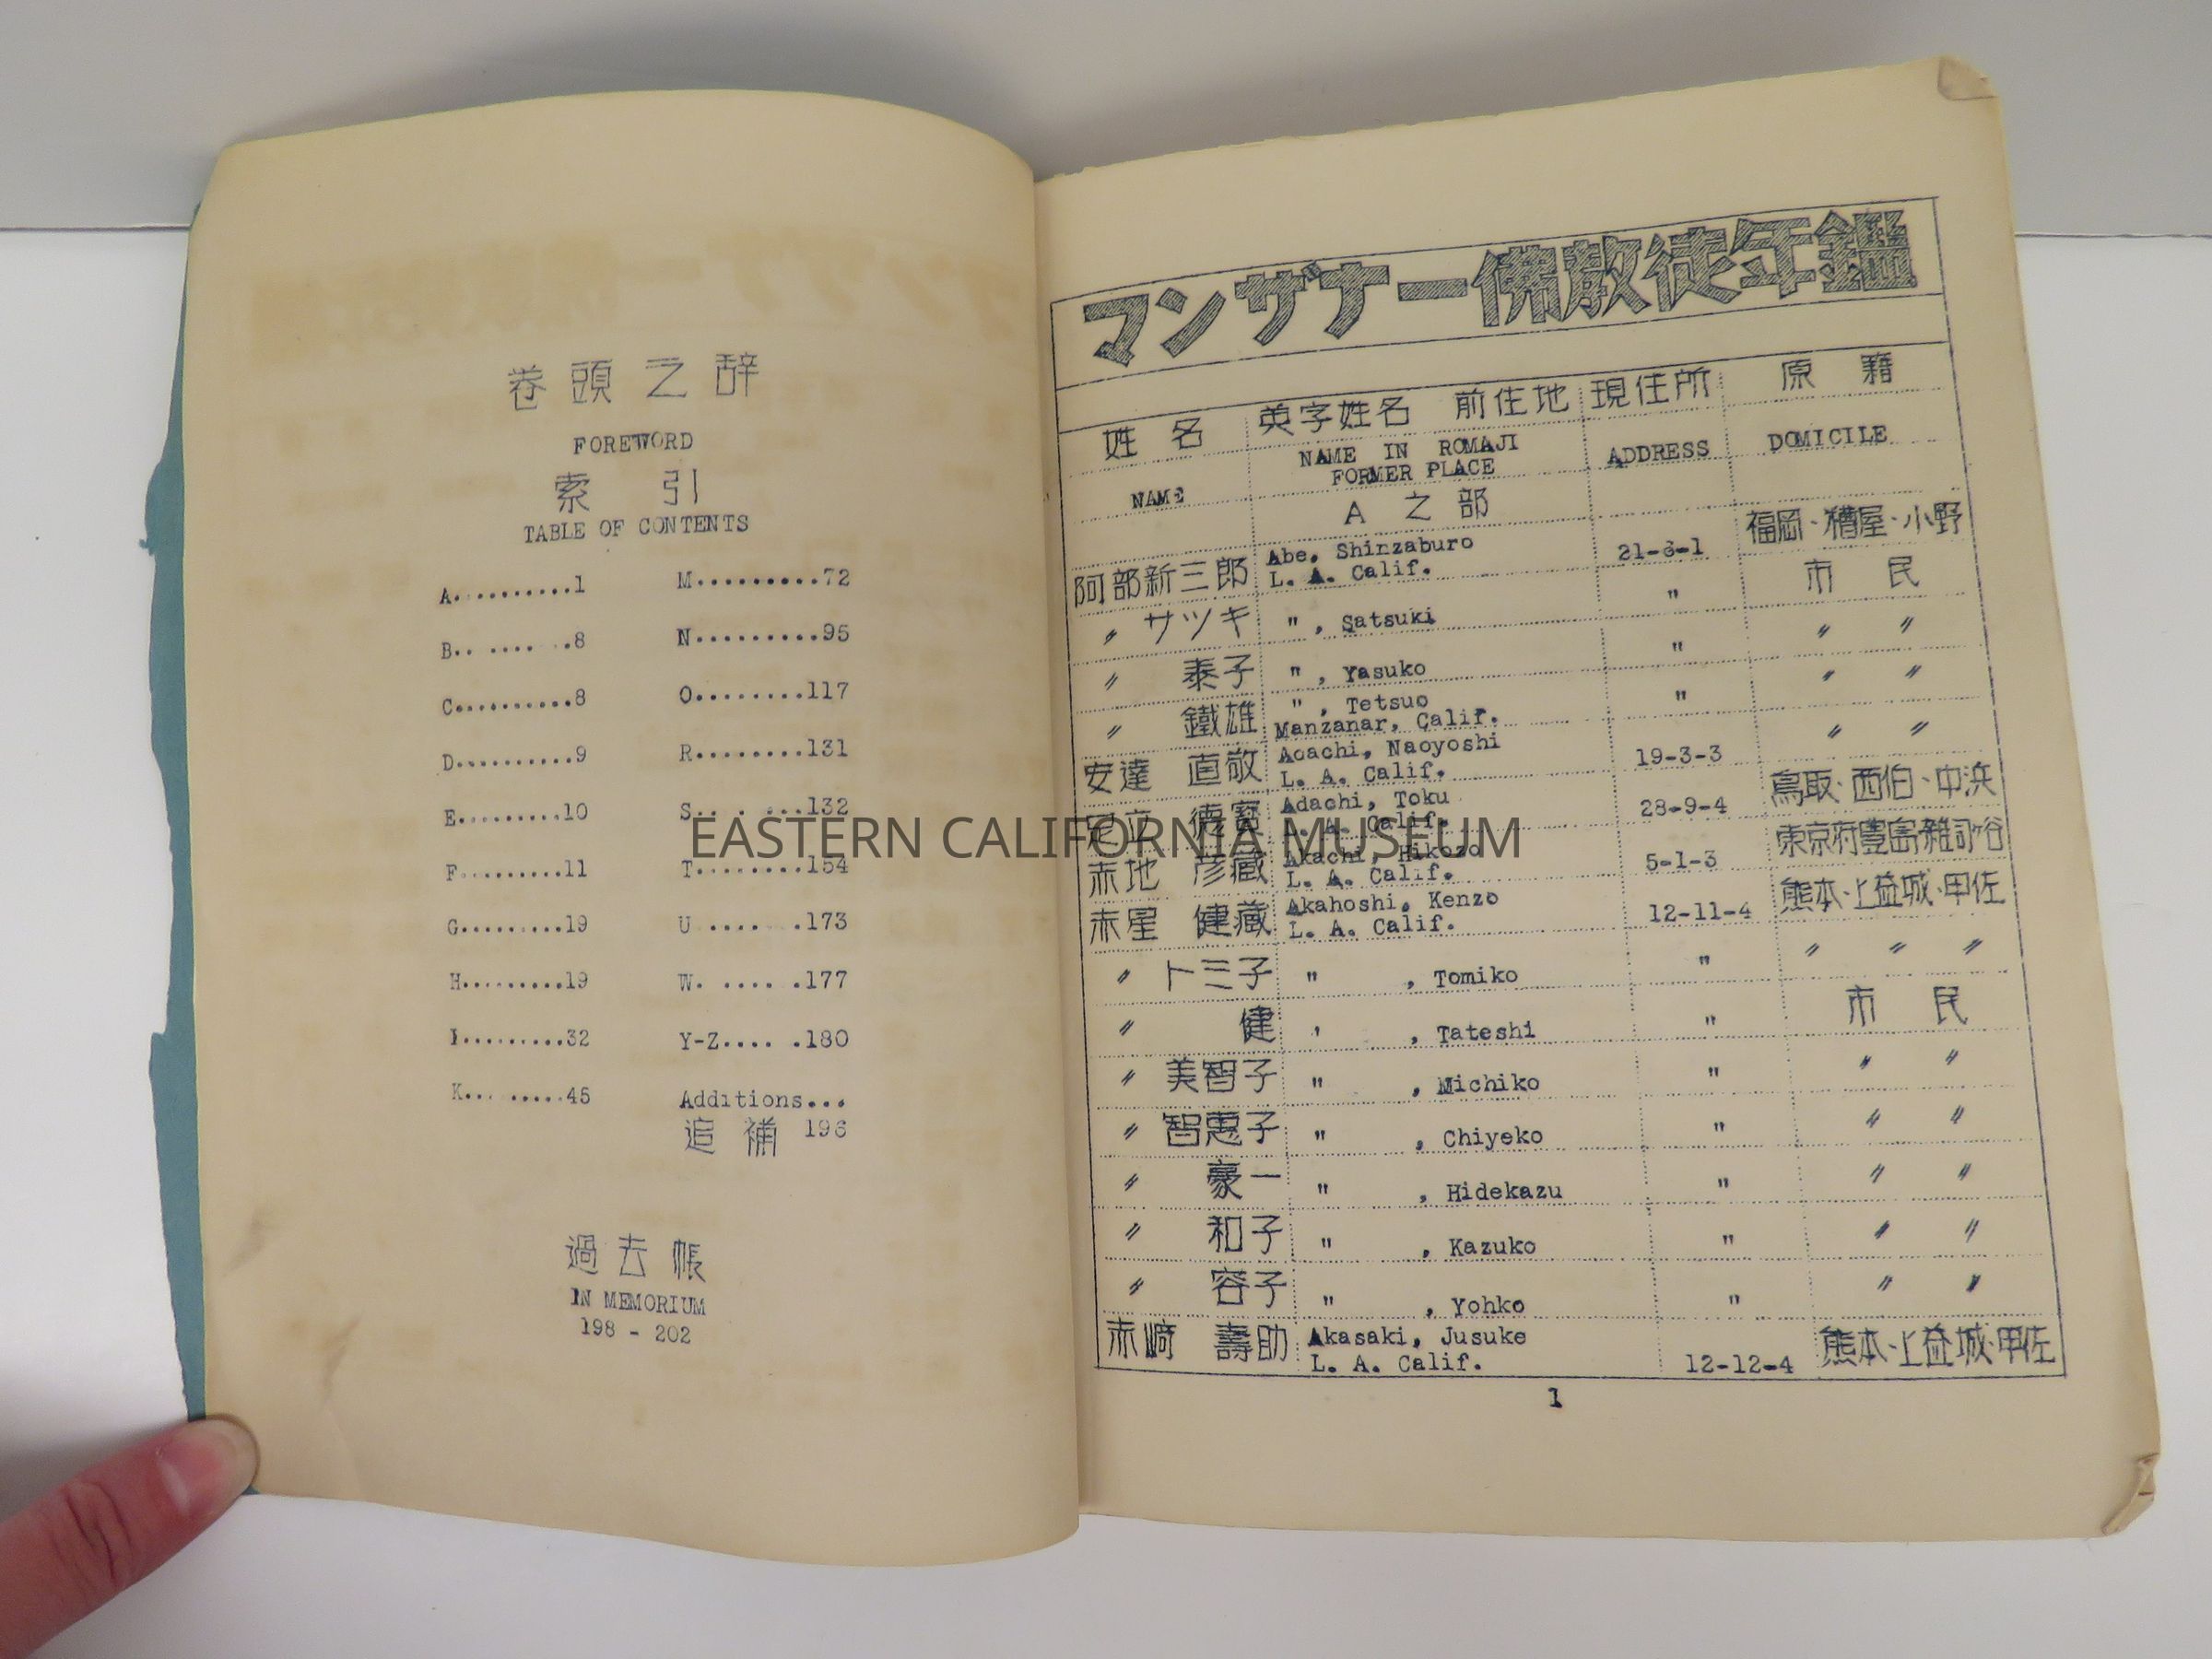 卷頭之辞
FOREWORD
索引
TABLE OF CONTENTS
A..........1
B.. .... ..8
C..........8
D..........9
E.........10
F.........11
G.........19
H.........19
I.........32
K.........45
M.........72
N.........95
O........117
R........131
S.. . ...132
T........154
U .... .173
W. .... .177
Y-Z.... .180
Additions...
追補 196
過去帳
IN MEMORIUM
198 - 202
マンザナー佛教徒年鑑
姓名 英字姓名 前住地 現住所 原籍
NAME NAME IN ROMAJI FORMER PLACE ADDRESS DOMICILE
A 之部
阿部新三郎 Abe, Shinzaburo L. A. Calif. 21-6-1 福岡・糟屋・小野
〃 サツキ " , Satsuki " 市民
〃 泰子 " , Yasuko " 〃 〃
〃 鐵雄 " , Tetsuo Manzanar, Calif. " 〃 〃
安達 直敬 Adachi, Naoyoshi L. A. Calif. 19-3-3 〃 〃
足立 德寳 Adachi, Toku L. A. Calif. 28-9-4 鳥取・西伯・中浜
赤地 彦藏 Akachi, Hikozo L. A. Calif. 5-1-3 東京府豊島雜司谷
赤星 健藏 Akahoshi, Kenzo L. A. Calif. 12-11-4 熊本・上益城・甲佐
〃 トミ子 " , Tomiko " 〃 〃 〃
〃 健 " , Tateshi " 市民
〃 美智子 " , Michiko " 〃 〃
〃 智惠子 " , Chiyeko " 〃 〃
〃 豪一 " , Hidekazu " 〃 〃
〃 和子 " , Kazuko " 〃 〃
〃 容子 " , Yohko " 〃 〃
赤崎 壽助 Akasaki, Jusuke L. A. Calif. 12-12-4 熊本・上益城・甲佐
1
EASTERN CALIFORNIA MUSEUM